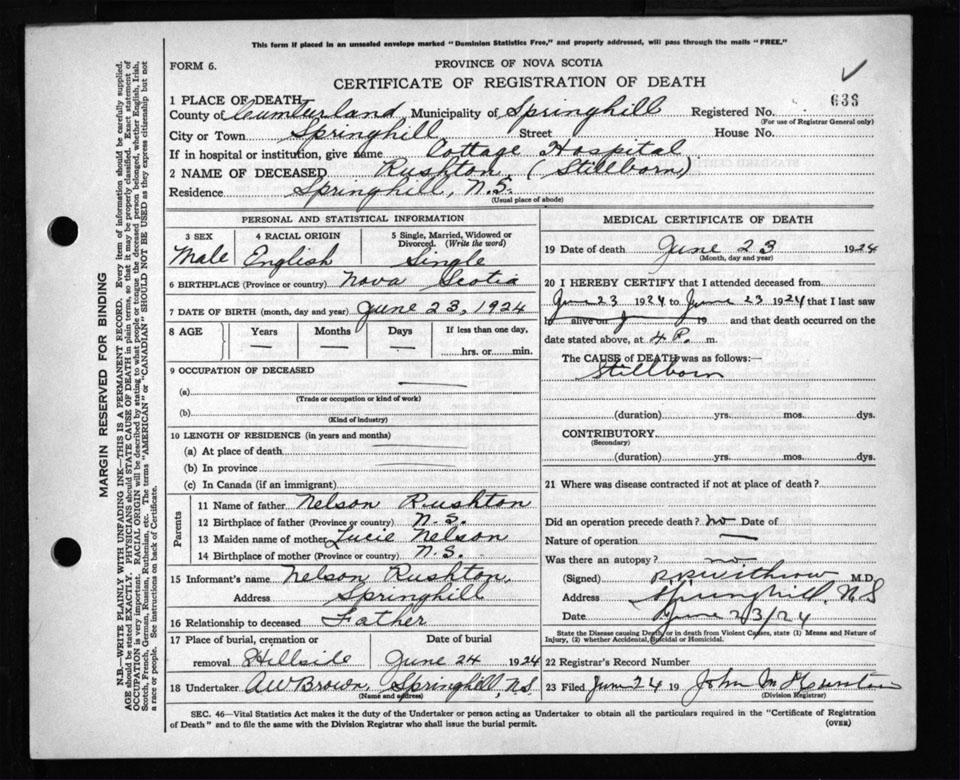 This form if placed in an unsealed envelope marked "Dominion Statistics Free," and properly addressed, will pass through the mails "FREE."
FORM 6.
PROVINCE OF NOVA SCOTIA
CERTIFICATE OF REGISTRATION OF DEATH
1 PLACE OF DEATH
County of Cumberland Municipality of Springhill Registered No. 638
(For use of Registrar General only)
City or Town Springhill Street House No.
If in hospital or institution, give name Cottage Hospital
2 NAME OF DECEASED Rushton (Stillborn)
Residence Springhill, N.S.
(Usual place of abode)
PERSONAL AND STATISTICAL INFORMATION
3 SEX 4 RACIAL ORIGIN 5 Single, Married, Widowed or Divorced. (Write the word)
Male English Single
6 BIRTHPLACE (Province or country) Nova Scotia
7 DATE OF BIRTH (month, day and year) June 23, 1924
8 AGE Years Months Days If less than one day,
— — — hrs. or min.
9 OCCUPATION OF DECEASED —
(a)
(Trade or occupation or kind of work)
(b)
(Kind of industry)
10 LENGTH OF RESIDENCE (in years and months)
(a) At place of death
(b) In province
(c) In Canada (if an immigrant)
Parents
11 Name of father Nelson Rushton
12 Birthplace of father (Province or country) N.S.
13 Maiden name of mother Lucie Nelson
14 Birthplace of mother (Province or country) N.S.
15 Informant's name Nelson Rushton,
Address Springhill
16 Relationship to deceased Father
17 Place of burial, cremation or Date of burial
removal Hillside June 24 1924
18 Undertaker A W Brown, Springhill, N.S.
(Name and address)
MEDICAL CERTIFICATE OF DEATH
19 Date of death June 23 1924
(Month, day and year)
20 I HEREBY CERTIFY that I attended deceased from
June 23 1924 to June 23 1924 that I last saw
h alive on 19 and that death occurred on the
date stated above, at 4 P. m.
The CAUSE of DEATH was as follows:—
Stillborn
(duration) yrs. mos. dys.
CONTRIBUTORY
(Secondary)
(duration) yrs. mos. dys.
21 Where was disease contracted if not at place of death?
Did an operation precede death? no Date of
Nature of operation —
Was there an autopsy? no
(Signed) Withrow M.D.
Address Springhill, N S
Date June 23/24
State the Disease causing Death, or in death from Violent Causes, state (1) Means and Nature of
Injury, (2) whether Accidental, Suicidal or Homicidal.
22 Registrar's Record Number
23 Filed June 24 19 John M
(Division Registrar)
SEC. 46—Vital Statistics Act makes it the duty of the Undertaker or person acting as Undertaker to obtain all the particulars required in the "Certificate of Registration
of Death" and to file the same with the Division Registrar who shall issue the burial permit.
(OVER)
MARGIN RESERVED FOR BINDING
N.B.—WRITE PLAINLY WITH UNFADING INK—THIS IS A PERMANENT RECORD. Every item of information should be carefully supplied.
AGE should be stated EXACTLY. PHYSICIANS should STATE CAUSE OF DEATH in plain terms, so that it may be properly classified. Exact statement of
OCCUPATION is very important. RACIAL ORIGIN will be described by stating to what people or tongue the deceased person belonged, whether English, Irish,
Scotch, French, German, Russian, Ruthenian, etc. The terms "AMERICAN" or "CANADIAN" SHOULD NOT BE USED as they express citizenship but not
a race or people. See instructions on back of Certificate.